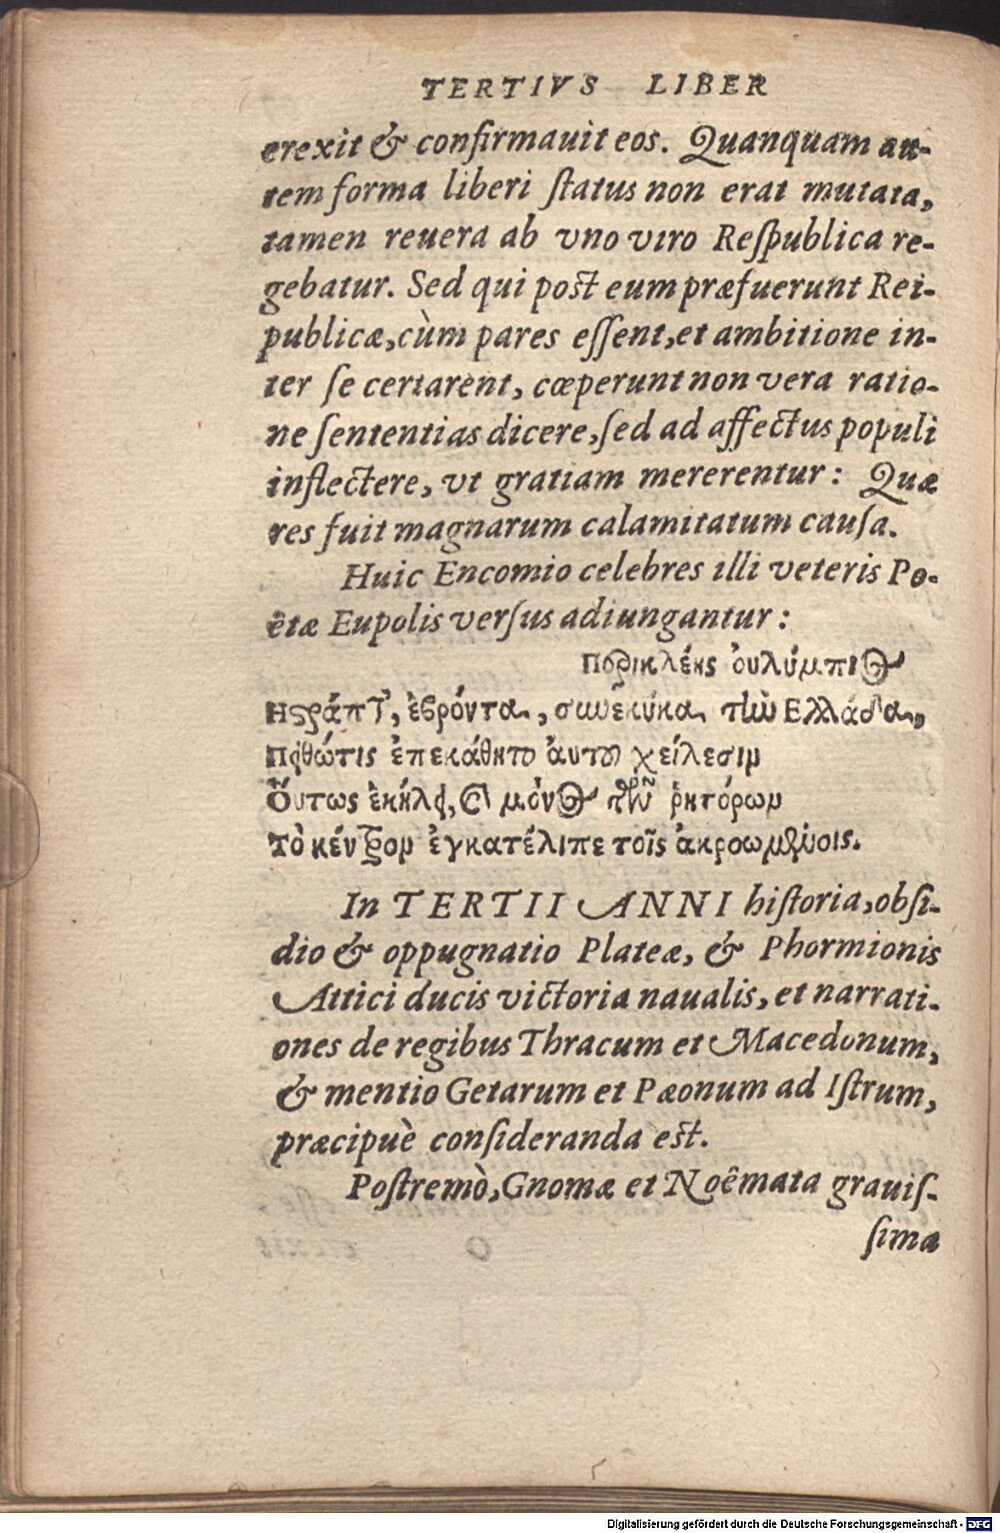 TERTIVS LIBER
erexit & confirmauit eos. Quanquam au-
tem forma liberi ſtatus non erat mutata,
tamen reuera ab vno viro Reſpublica re-
gebatur. Sed qui poſt eum præfuerunt Rei-
publicæ, cùm pares eſſent, et ambitione in-
ter ſe certarent, cœperunt non vera ratio-
ne ſententias dicere, ſed ad affectus populi
inflectere, vt gratiam mererentur: Quæ
res fuit magnarum calamitatum cauſa.
Huic Encomio celebres illi veteris Po-
êtæ Eupolis verſus adiungantur:
Περικλέης ὁυλύμπιος
Ηςράπτ', ἐβρόντα, συνεκύκα τὴν Ελλάδα,
Πειθώτις ἐπεκάθητο ἀυτοῦ χείλεσιν
Ὅυτως ἐκήλει, καὶ μόνος τῶν ῥητόρων
Τὸ κέντρον ἐγκατέλιπε τοῖς ἀκροωμένοις.
In TERTII ANNI hiſtoria, obſi-
dio & oppugnatio Plateæ, & Phormionis
Attici ducis victoria naualis, et narrati-
ones de regibus Thracum et Macedonum,
& mentio Getarum et Pæonum ad Iſtrum,
præcipuè conſideranda eſt.
Poſtremò, Gnomæ et Noêmata grauiſ-
ſima
Digitalisierung gefördert durch die Deutsche Forschungsgemeinschaft - DFG